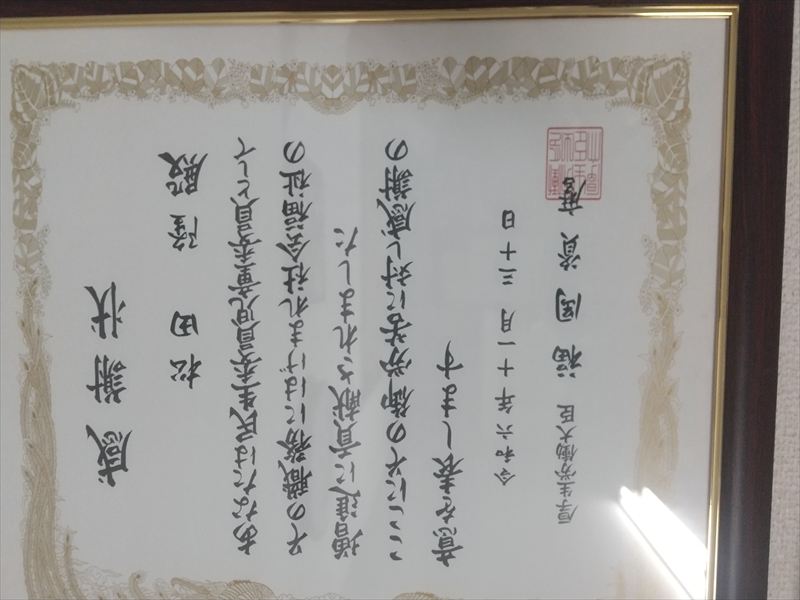 感謝状
松田隆殿
あなたは民生委員児童委員として
その職務にはげまれ社会福祉の
増進に貢献されました
ここにその御労苦に対し感謝の
意を表します
令和六年十一月三十日
厚生労働大臣 福岡資麿